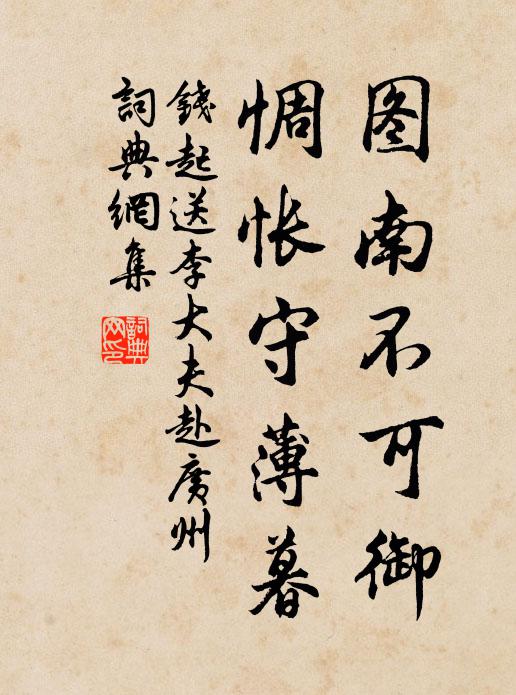 图南不可御
惆怅守薄暮
錢起送李大夫赴廣州
詞典網集
詞典网印